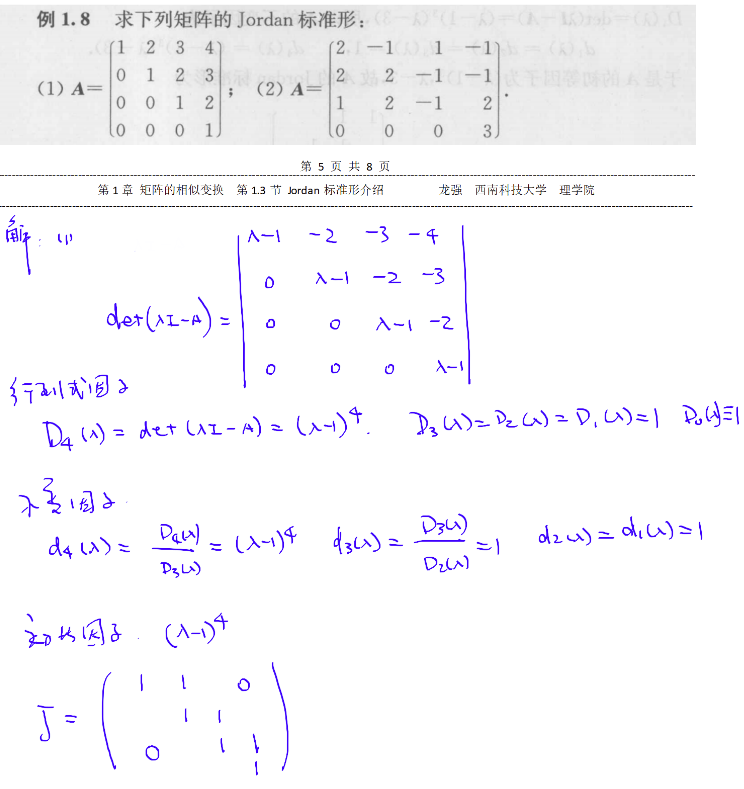 例 1.8 求下列矩阵的 Jordan 标准形:
(1) A= [1 2 3 4; 0 1 2 3; 0 0 1 2; 0 0 0 1]; (2) A= [2 -1 1 -1; 2 2 -1 -1; 1 2 -1 2; 0 0 0 3].
第 5 页 共 8 页
第 1 章 矩阵的相似变换 第 1.3 节 Jordan 标准形介绍 龙强 西南科技大学 理学院
解: (1)
det(λI-A) = | λ-1 -2 -3 -4; 0 λ-1 -2 -3; 0 0 λ-1 -2; 0 0 0 λ-1 |
行列式因子
D₄(λ) = det(λI-A) = (λ-1)⁴. D₃(λ) = D₂(λ) = D₁(λ) = 1 D₀(λ)≡1
不变因子.
d₄(λ) = D₄(λ)/D₃(λ) = (λ-1)⁴ d₃(λ) = D₃(λ)/D₂(λ) = 1 d₂(λ) = d₁(λ) = 1
初等因子. (λ-1)⁴
J = ( 1 1 0; 1 1; 0 1 1; 1 )